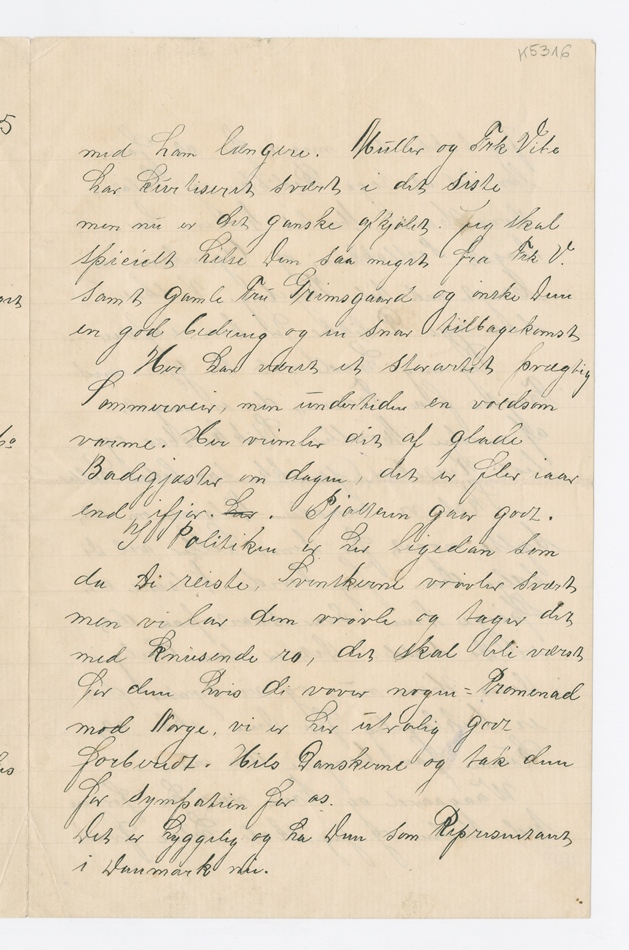 K5316
5
med ham længere. Müller og Frk Vibe
har kurtiseret svært i det siste
men nu er det ganske afkjølet. Jeg skal
specielt hilse Dem saa meget fra Frk V.
samt gamle Fru Grimsgaard og ønske Dem
en god bedring og en snar tilbagekomst
Her har været et storartet prægtig
Sommerveir, men undertiden en voldsom
varme. Her vrimler det af glade
Badegjæster om dagen, det er fler iaar
end ifjor. Her. Pjalteren gaar godt.
I Politiken er her ligedan som
da Di reiste, Svenskerne vrøvler svært
men vi lar dem vrøvle og tager det
med knusende ro, det skal bli værst
for dem hvis di vover nogen = Promenad
mod Norge, vi er her utrolig godt
forberedt. Hils Danskerne og tak dem
for sympatien for os.
Det er hyggelig og ha Dem som Representant
i Danmark nu.